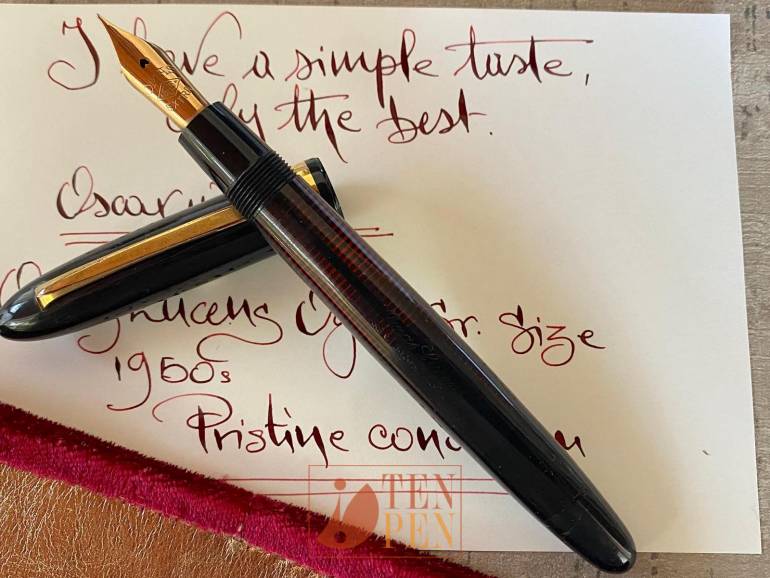 I have a simple taste,
only the best.
Oscar
Lucens Sr. Size
1950s
Pristine condition
TEN
PEN